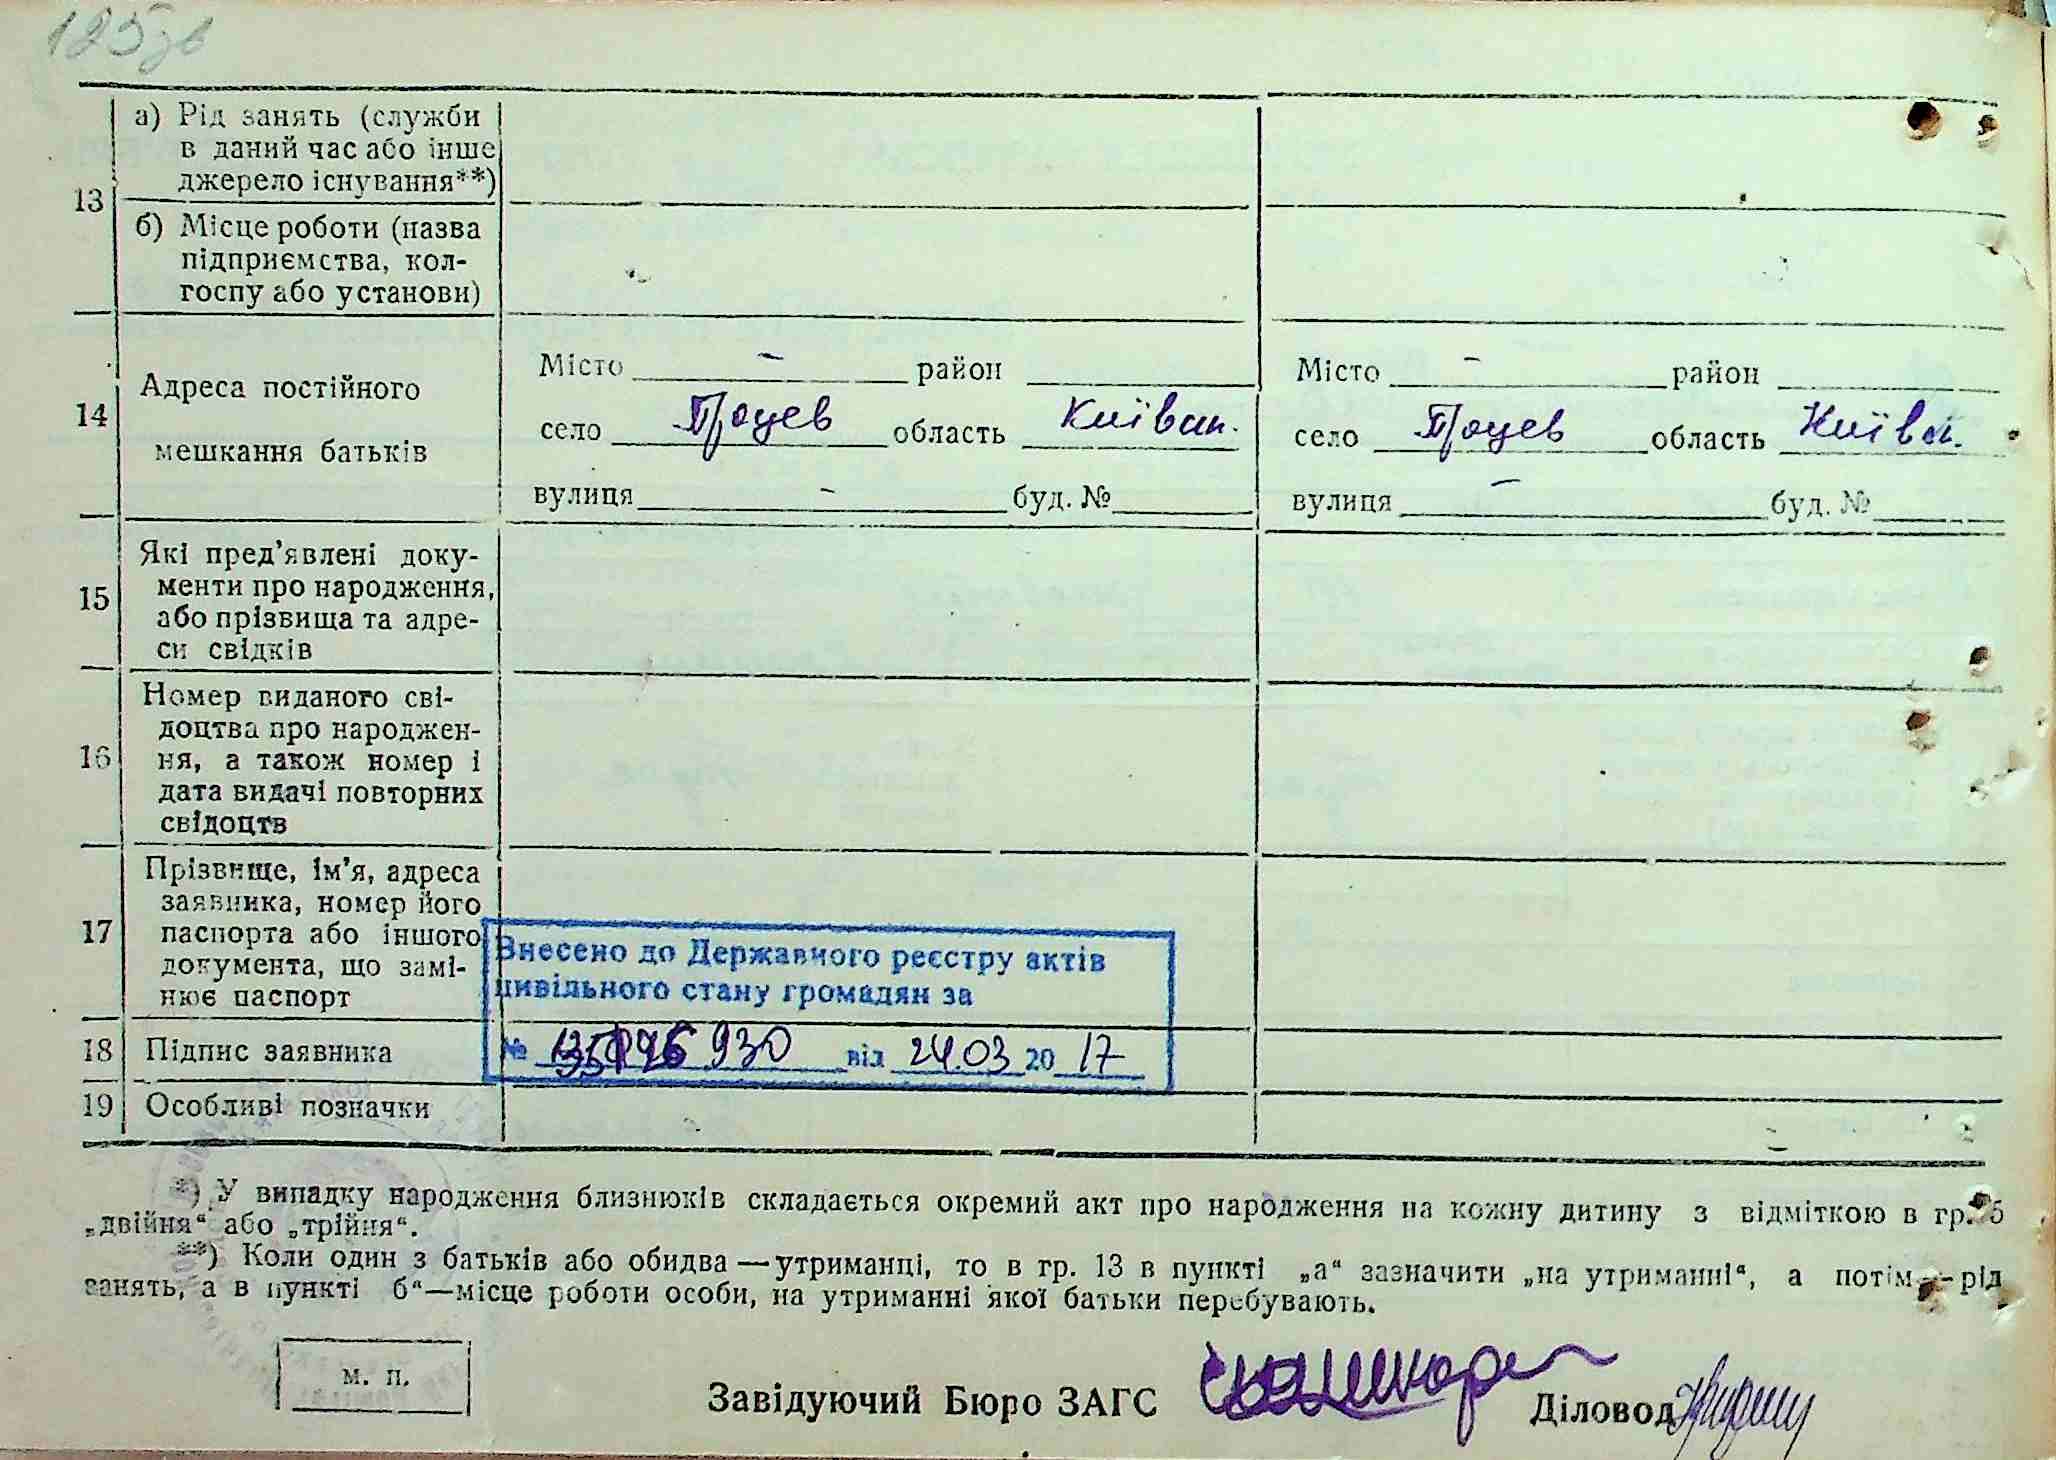 125 зв
13
а) Рід занять (служби
в даний час або інше
джерело існування**)
б) Місце роботи (назва
підприємства, кол-
госпу або установи)
14
Адреса постійного
мешкання батьків
Місто – район
село Процев область Київськ.
вулиця – буд. №
Місто – район
село Процев область Київсь.
вулиця – буд. №
15
Які пред’явлені доку-
менти про народження,
або прізвища та адре-
си свідків
16
Номер виданого сві-
доцтва про народжен-
ня, а також номер і
дата видачі повторних
свідоцтв
17
Прізвище, ім’я, адреса
заявника, номер його
паспорта або іншого
документа, що замі-
нює паспорт
Внесено до Державного реєстру актів
цивільного стану громадян за
№ 930 від 24.03 2017
18 Підпис заявника
19 Особливі позначки
*) У випадку народження близнюків складається окремий акт про народження на кожну дитину з відміткою в гр. 5
„двійня“ або „трійня“.
**) Коли один з батьків або обидва—утриманці, то в гр. 13 в пункті „а“ зазначити „на утриманні“, а потім—рід
занять, а в пункті б“—місце роботи особи, на утриманні якої батьки перебувають.
м. п.
Завідуючий Бюро ЗАГС
Діловод